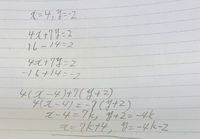 x=4, y=-2
4x+7y=2
16-14=2
4x+7y=2
-16+14=-2
4(x-4)+7(y+2)
4(x-4)=-7(y+2)
x-4=7k, y+2=-4k
x=7k+4, y=-4k-2